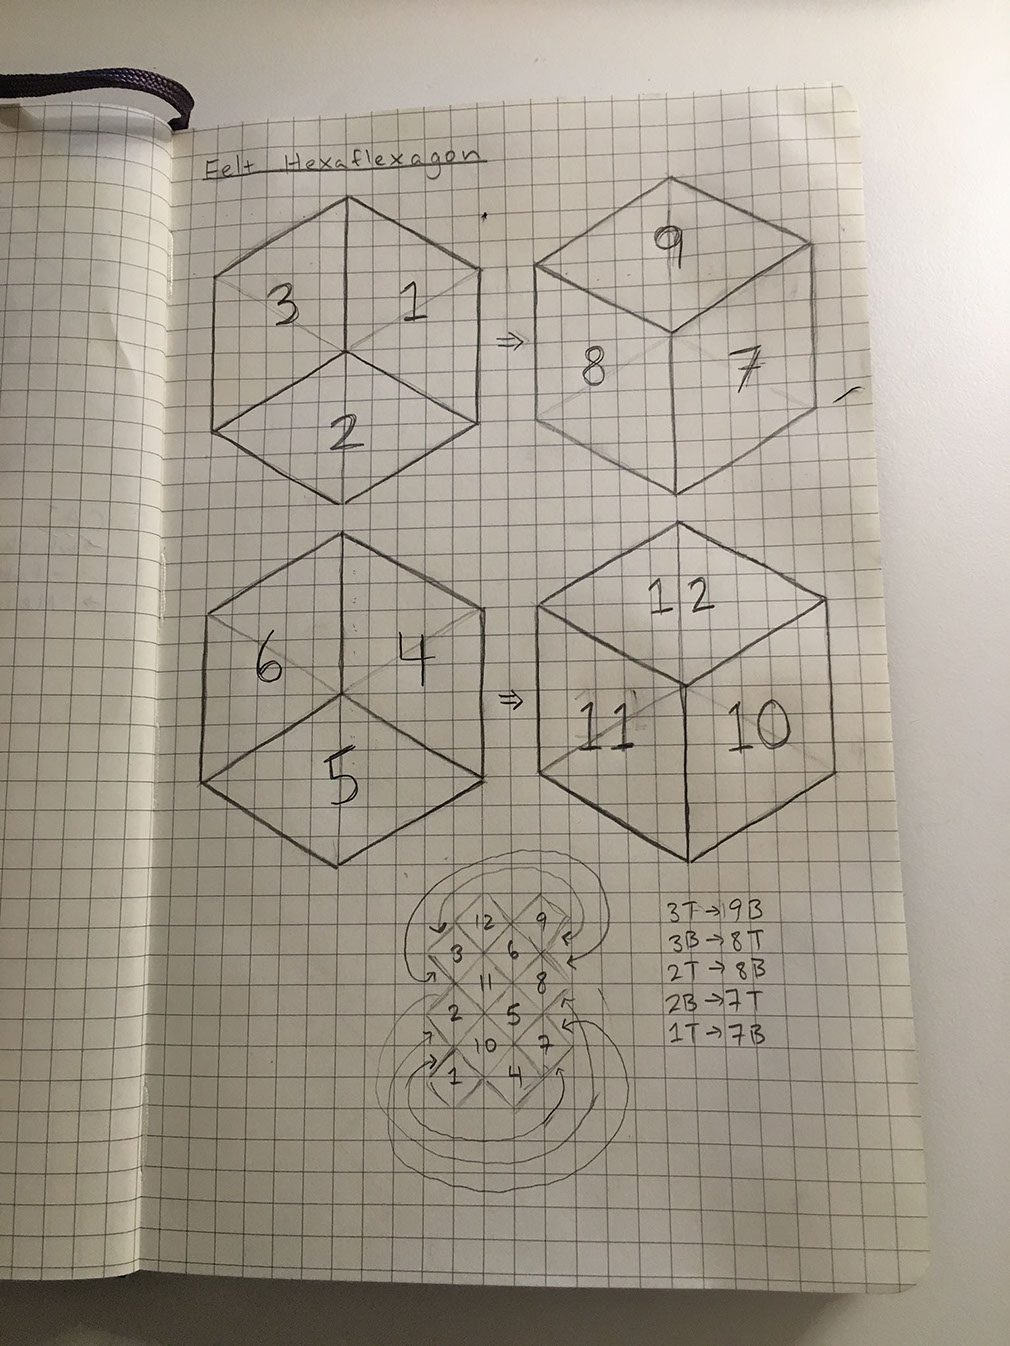 Felt Hexaflexagon
3 1
2
9
8 7
6 4
5
12
11 10
12 9
3 6
11 8
2 5
10 7
1 4
3T→9B
3B→8T
2T→8B
2B→7T
1T→7B